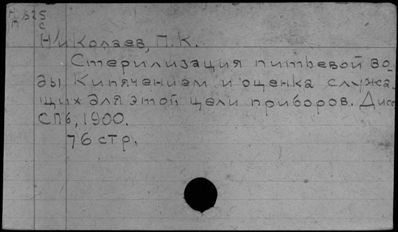 Николаев, П.К.
Стерилизация питьевой во-
ды кипячением и оценка служа-
щих для этой цели приборов. Дисс
СПб, 1900.
76 стр.